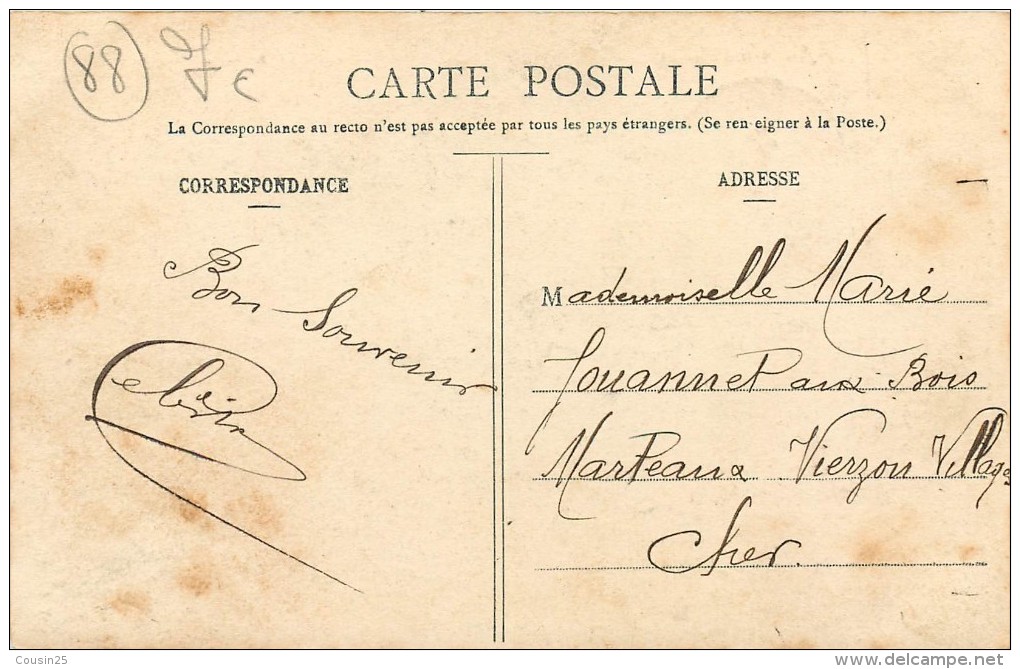 88
CARTE POSTALE
La Correspondance au recto n'est pas acceptée par tous les pays étrangers. (Se ren eigner à la Poste.)
CORRESPONDANCE
Bon Souvenir
ADRESSE
Mademoiselle Marie
Jouannet aux Bois
Marteaux Vierzon Village
Cher
Cousin25
www.delcampe.net